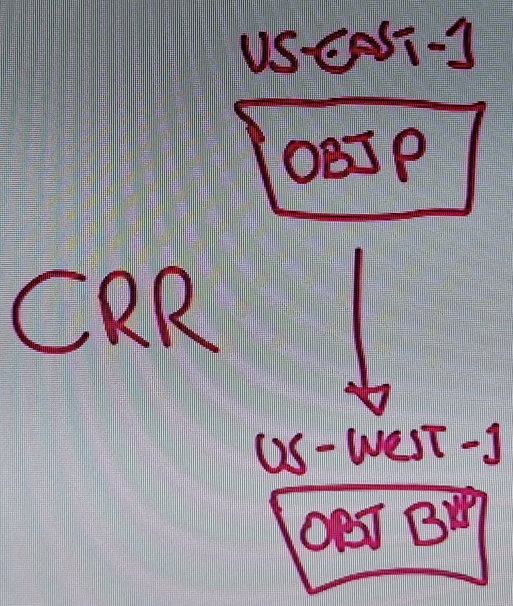 US-EAST-1
OBJ P
CRR
US-WEST-1
OBJ BKP